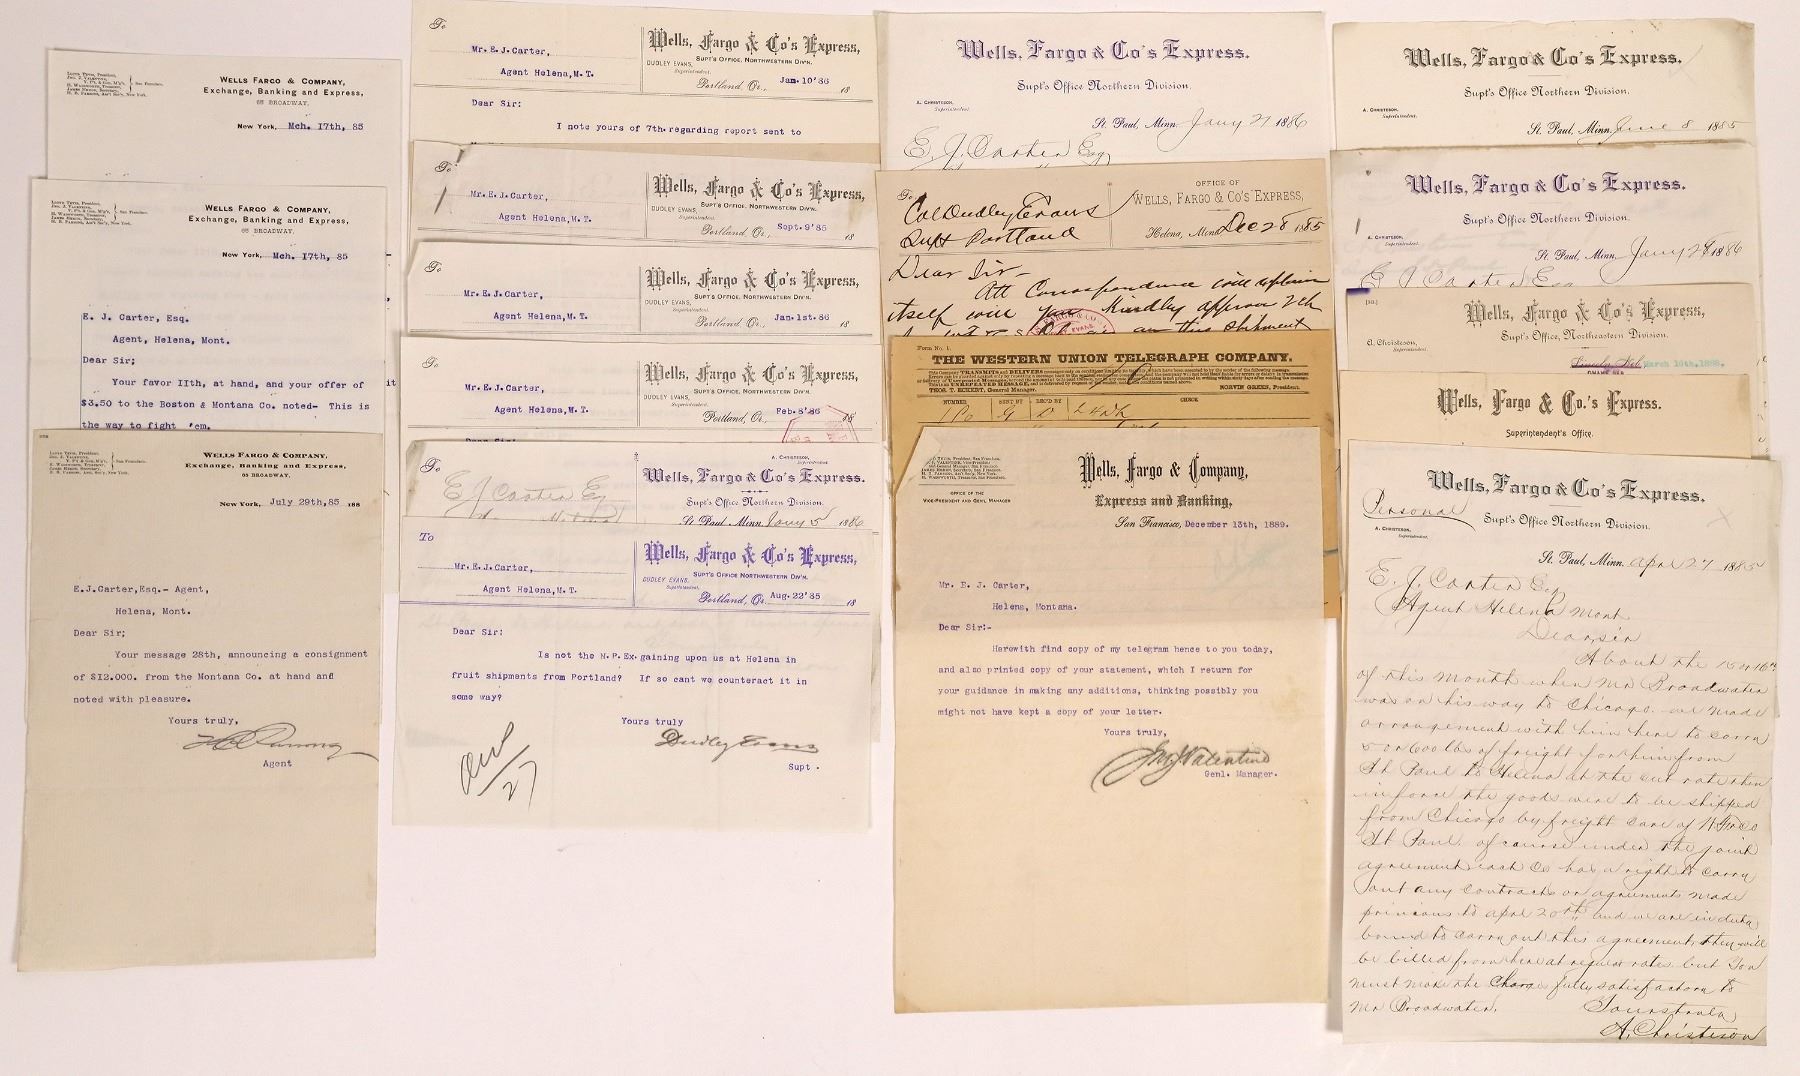 Lloyd Tevis, President,
San Francisco.
WELLS FARGO & COMPANY,
Exchange, Banking and Express,
65 BROADWAY,
New York, Mch. 17th, 85
WELLS FARGO & COMPANY,
Exchange, Banking and Express,
65 BROADWAY,
New York, Mch. 17th, 85
E. J. Carter, Esq.
Agent, Helena, Mont.
Dear Sir;
Your favor IIth, at hand, and your offer of
$3.50 to the Boston & Montana Co. noted- This is
the way to fight 'em.
it
WELLS FARGO & COMPANY,
Exchange, Banking and Express,
65 BROADWAY,
New York, July 29th,85 188
E.J.Carter,Esq.- Agent,
Helena, Mont.
Dear Sir;
Your message 28th, announcing a consignment
of $12.000. from the Montana Co. at hand and
noted with pleasure.
Yours truly,
Agent
To
Mr. E. J. Carter,
Agent Helena, M. T.
Wells, Fargo & Co's Express,
SUPT'S OFFICE, NORTHWESTERN DIV'N.
DUDLEY EVANS,
Superintendent.
Portland, Or., Jan. 10'86 18
Dear Sir:
I note yours of 7th. regarding report sent to
To
Mr. E. J. Carter,
Agent Helena, M. T.
Wells, Fargo & Co's Express,
SUPT'S OFFICE, NORTHWESTERN DIV'N.
DUDLEY EVANS,
Superintendent.
Portland, Or., Sept. 9'85 18
To
Mr. E. J. Carter,
Agent Helena, M. T.
Wells, Fargo & Co's Express,
SUPT'S OFFICE, NORTHWESTERN DIV'N.
DUDLEY EVANS,
Superintendent.
Portland, Or., Jan. 1st. 86 18
To
Mr. E. J. Carter,
Agent Helena, M. T.
Wells, Fargo & Co's Express,
SUPT'S OFFICE, NORTHWESTERN DIV'N.
DUDLEY EVANS,
Superintendent.
Portland, Or., Feb. 8'86 18
Dear Sir:
To
E J Carter Esq
A. CHRISTESON,
Superintendent.
Wells, Fargo & Co's Express.
Supt's Office Northern Division.
St. Paul, Minn. Jany 5 1886
To
Mr. E. J. Carter,
Agent Helena, M. T.
Wells, Fargo & Co's Express,
SUPT'S OFFICE NORTHWESTERN DIV'N.
DUDLEY EVANS,
Superintendent.
Portland, Or. Aug. 22'85 18
Dear Sir:
Is not the N.P.Ex. gaining upon us at Helena in
fruit shipments from Portland? If so cant we counteract it in
some way?
Yours truly
Dudley Evans
Supt.
27
Wells, Fargo & Co's Express.
Supt's Office Northern Division.
A. CHRISTESON,
Superintendent.
St. Paul, Minn. Jany 21 1886
E. J. Carter Esq
To
Col Dudley Evans
Supt Portland
OFFICE OF
WELLS, FARGO & CO'S EXPRESS,
Helena, Mont. Dec 28 1885
Dear Sir-
All Correspondence will explain
itself will you Kindly approve
on this Shipment
Form No. 1.
THE WESTERN UNION TELEGRAPH COMPANY.
This Company TRANSMITS and DELIVERS messages only on conditions
THOS. T. ECKERT, General Manager.
NORVIN GREEN, President.
NUMBER
SENT BY
REC'D BY
CHECK
Wells, Fargo & Company,
Express and Banking,
OFFICE OF THE
VICE-PRESIDENT AND GENL MANAGER
San Francisco, December 13th, 1889.
Mr. E. J. Carter,
Helena, Montana.
Dear Sir:-
Herewith find copy of my telegram hence to you today,
and also printed copy of your statement, which I return for
your guidance in making any additions, thinking possibly you
might not have kept a copy of your letter.
Yours truly,
Jno J Valentine
Genl. Manager.
Wells, Fargo & Co's Express.
Supt's Office Northern Division.
A. CHRISTESON,
Superintendent.
St. Paul, Minn. June 8 1885
Wells, Fargo & Co's Express.
Supt's Office Northern Division.
A. CHRISTESON,
Superintendent.
St. Paul, Minn. Jany 28 1886
E J Carter Esq
Wells, Fargo & Co's Express,
Supt's Office, Northeastern Division.
A. Christeson,
Superintendent.
Lincoln, Neb. March 10th, 1888.
OMAHA NEB
Wells, Fargo & Co.'s Express.
Superintendent's Office.
Wells, Fargo & Co's Express.
Personal
Supt's Office Northern Division.
A. CHRISTESON,
Superintendent.
St. Paul, Minn. Apr 27 1885
E. J. Carter Esq
Agent Helena Mont
Dear sir
About the 15 or 16th
of this month when Mr Broadwater
was on his way to Chicago we made
arrangement with him here to carry
5 or 600 lbs of freight for him from
St Paul to Helena at the cut rate then
in force the goods were to be shipped
from Chicago by freight care of WF&Co
St Paul. of course under the joint
agreement each Co has a right to carry
out any contracts or agreements made
previous to Apr 20th and we are in duty
bound to carry out this agreement, they will
be billed from here at regular rates but you
must make the Charge fully satisfactory to
Mr Broadwater.
Yours truly
A. Christeson